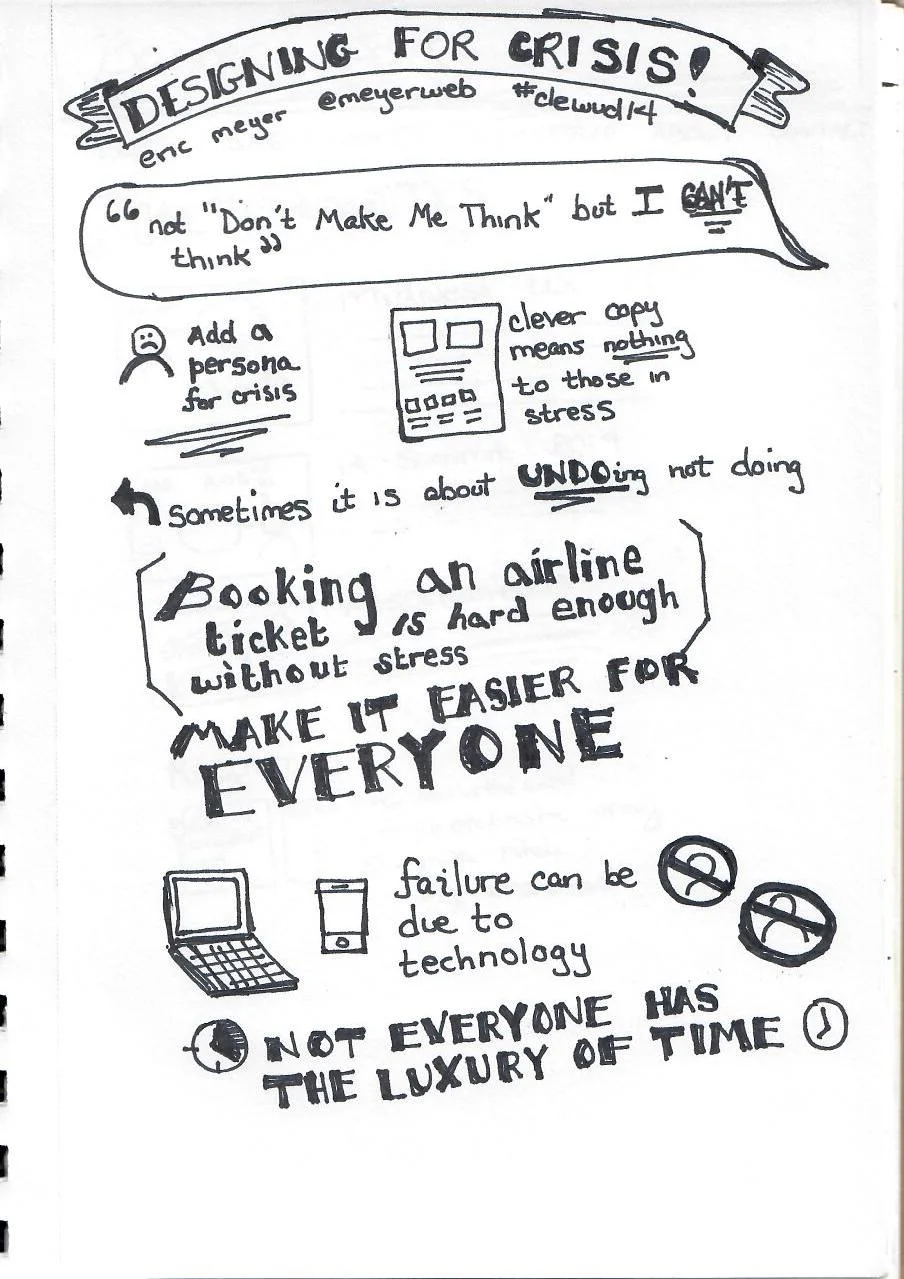 DESIGNING FOR CRISIS!
eric meyer @meyerweb #clewud14
“not "Don't Make Me Think" but I CAN'T
think”
Add a
persona
for crisis
clever copy
means nothing
to those in
stress
Sometimes it is about UNDOing not doing
Booking an airline
ticket is hard enough
without stress
MAKE IT EASIER FOR
EVERYONE
failure can be
due to
technology
NOT EVERYONE HAS
THE LUXURY OF TIME